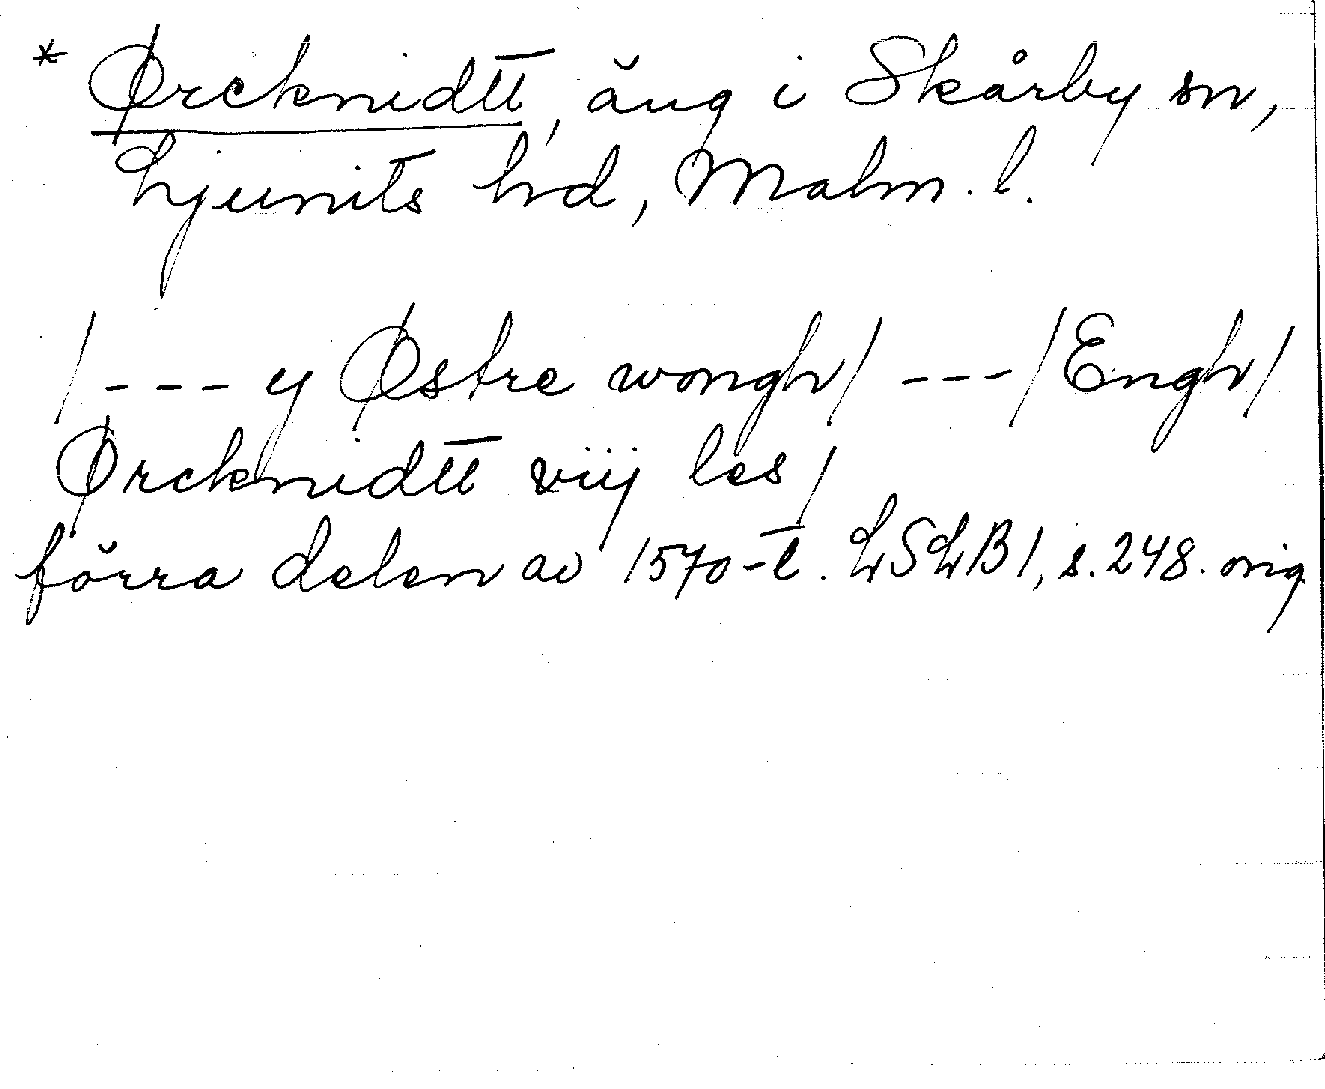 * Ørcknidtt, äng i Skårby sn,
Ljunits hrd, Malm. l.
/--- y Østre wongh/ ---/Engh/
Ørcknidtt viij les/
förra delen av 1570-t. LSLB1, s.248. orig